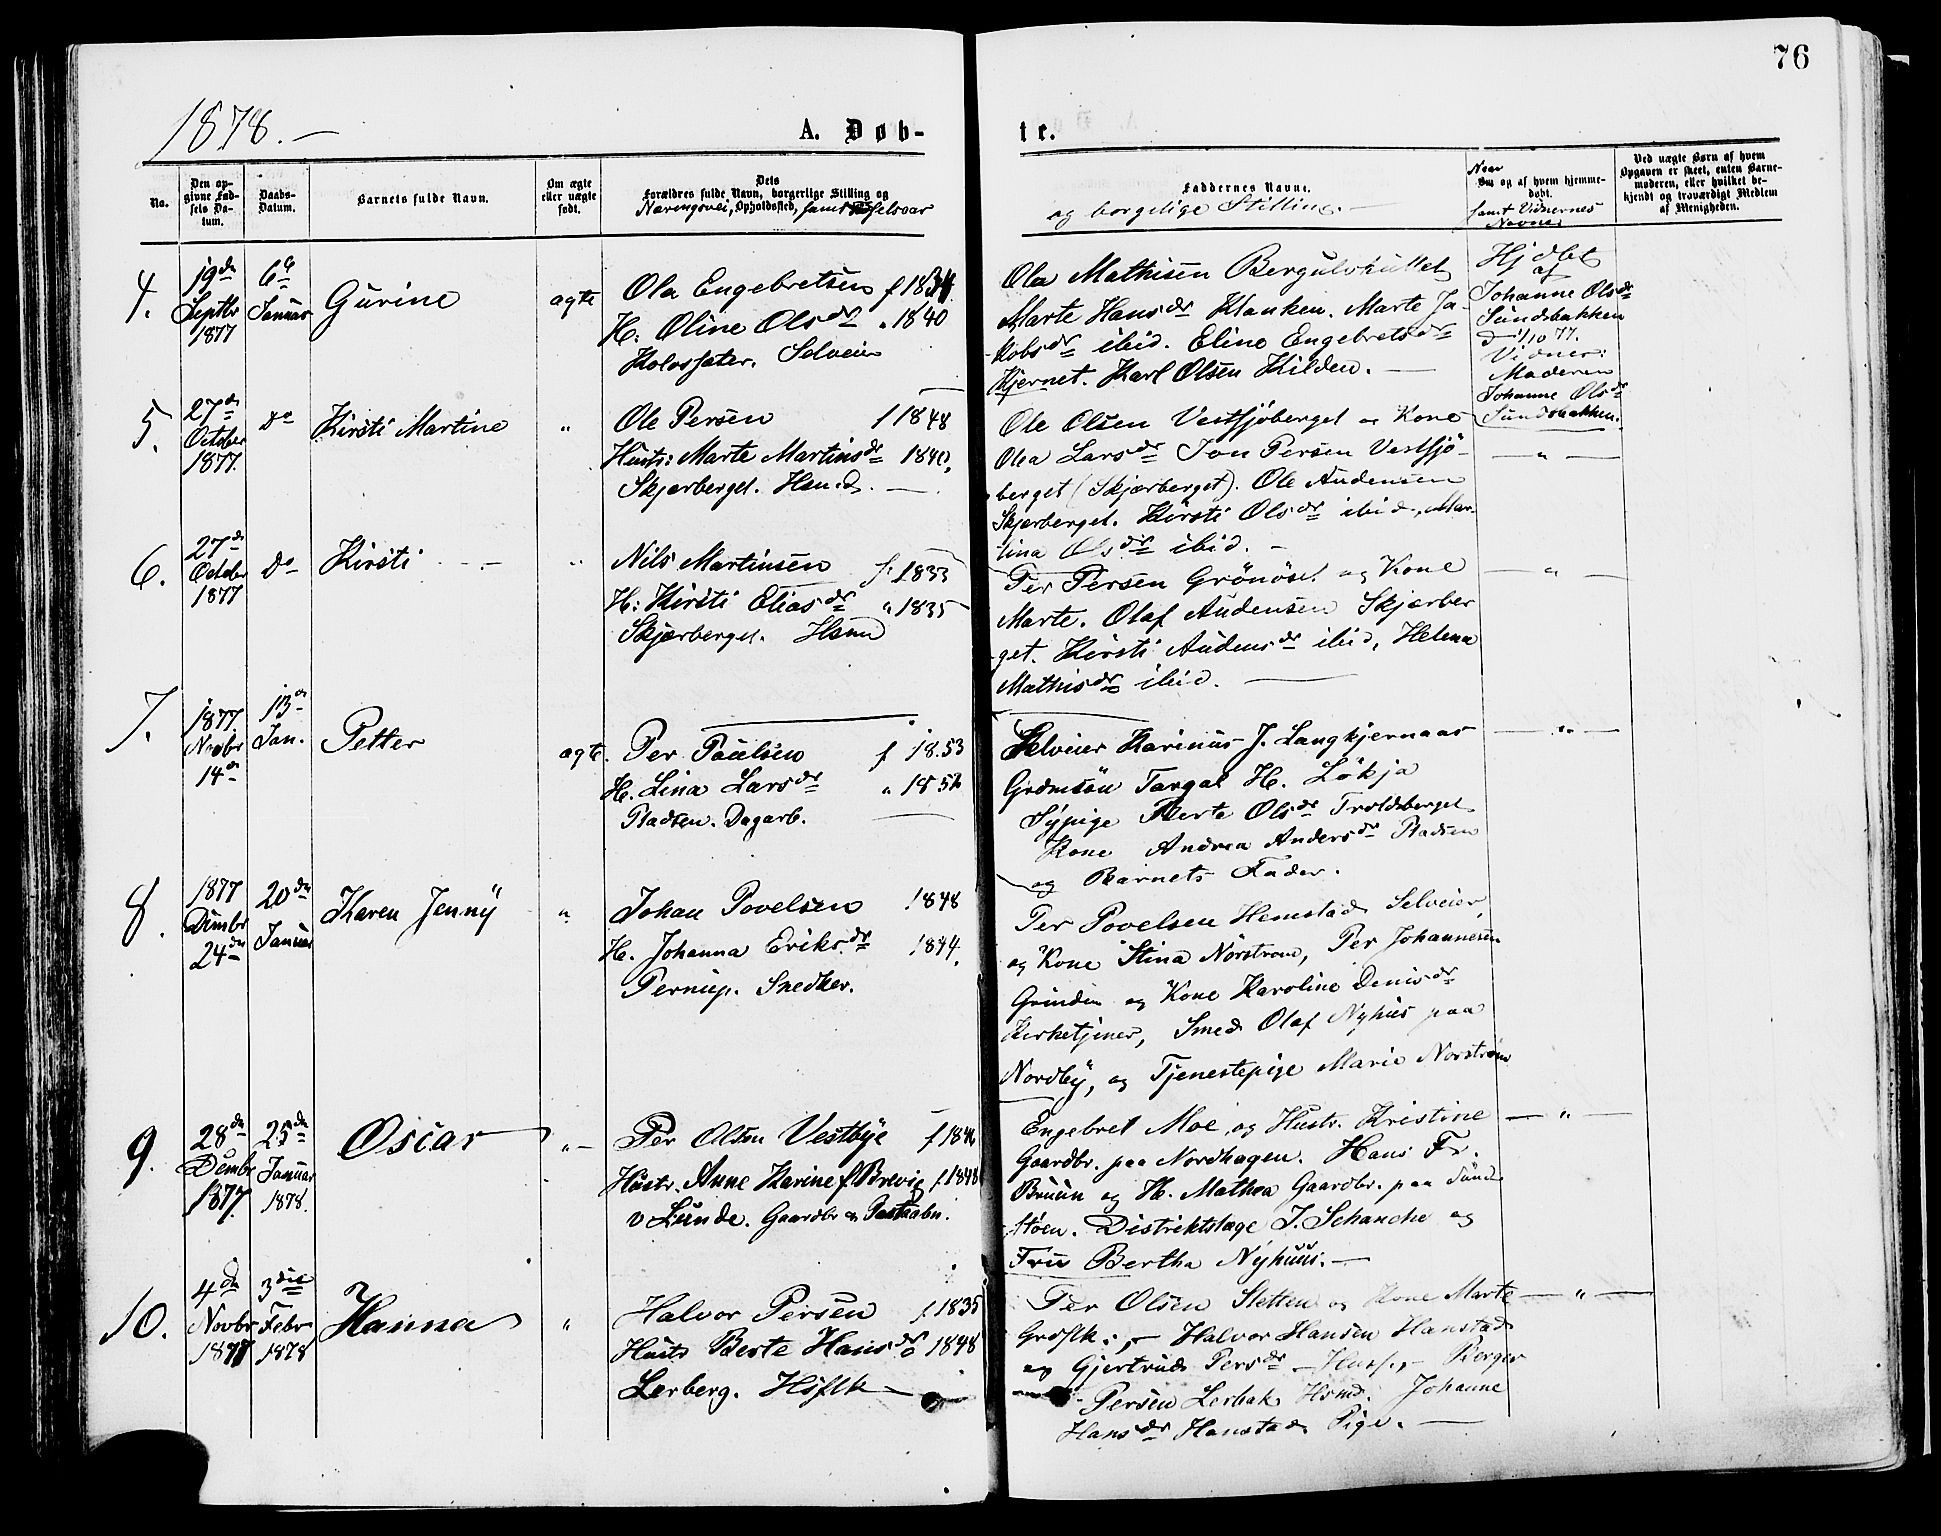 76
1878.—
A. Døb-
te.
No.
Den op-
givne Fød-
sels Da-
tum.
Daabs-
Datum.
Barnets fulde Navn.
Om ægte
eller uægte
født.
Dets
Forældres fulde Navn, borgerlige Stilling og
Opholdssted, samt
Faddernes Navne.
og borgelige Stilling.—
Naar
Om og af hvem hjemme-
døbt.
samt Vidnernes
Navne.
Ved uægte Børn af hvem
Opgaven er skeet, enten Barne-
moderen, eller hvilket be-
kjendt og troværdigt Medlem
af Menigheden.
4.
19de
Septbr
1877
6te
Januar
Gurine
ægte
Ola Engebretsen f 1834
H: Oline Olsdr " 1840
Kolosæter. Selveier
Ola Mathisen Bergulvhullet
Marte Hansdr Klanken. Marte Ja-
kobsdr ibid. Eline Engebretsdr
Kjernet. Karl Olsen Kilden. —
Hjdbt
af
Johanne Olsdr
Sundbakken
d 1/10 77.
Vidner:
Moderen
Johanne Olsdr
Sundbakken.
5.
27de
October
1877.
Do
Kirsti Martine
"
Ole Persen f 1848
Hustr: Marte Martinsdr 1840.
Skjærberget. Hsmd. —
Ole Olsen Vestsjøberget og Kone
Olea Larsdr Jon Persen Vestsjö-
berget (Skjærberget). Ole Audensen
Skjærberget. Kirsti Olsdr ibid, Mar-
tina Olsdr ibid. —
— " —
6.
27de
October
1877
Do
Kirsti
"
Nils Martinsen f: 1833
H: Kirsti Eliasdr " 1835
Skjærberget. Hsmd
Per Persen Grönöset og Kone
Marte. Olaf Audensen Skjærber
get. Kirsti Audensdr ibid, Helena
Mathisdr ibid. —
— " —
7.
1877
Novbr
14de
13de
Jan.
Petter
ægte.
Per Paulsen f 1853
H. Lina Larsdr " 1852
Pladsen. Dagarb. —
Selveier Karinus J. Langkjernaas
Grdmsön Torgal H. Lökja
Sypige Berte Olsdr Troldsberget
Kone Andrea Andersdr Pladsen
og Barnets Fader.
— " —
8.
1877
Dcmbr
24de
20de
Januar
Karen Jenny
"
Johan Povelsen 1848
H. Johanna Eriksdr 1844.
Pernup. Snedker.
Per Povelsen Hemstad Selveier,
og Kone Stina Norstrom, Per Johannesen
Grinden og Kone Karoline Denisdr
Kirketjener, Smed Olaf Nyhus paa
Nordby, og Tjenestepige Marie Norström
9.
28de
Dcmbr
1877.
25de
Januar
1878.
Oscar
" —
Per Olsen Vestbye f 1846
Hustr. Anne Karine f. Brevig f. 1848
v Lunde. Gaardbr &
Engebret Moe og Hustr. Kristine
Gaardbr. paa Nordhagen. Hans Fr.
Bruun og H. Mathea Gaardbr. paa Sund
støen. Distriktslæge J. Schanche og
Fru Bertha Nyhuus. —
— " —
10.
4de
Novbr
1877
3die
Febr
1878
Hanna
"
Halvor Persen f. 1835
Hustr Berte Hansdr 1848
Lerberg. Hsflk —
Per Olsen Sletten og Kone Marte
Grdflk; — Halvor Hansen Hanstad
og Gjertrud Persdr — — Berger
Persen Lerbak Hsmd. Johanne
Hansdr Hanstad Pige. —
— " —